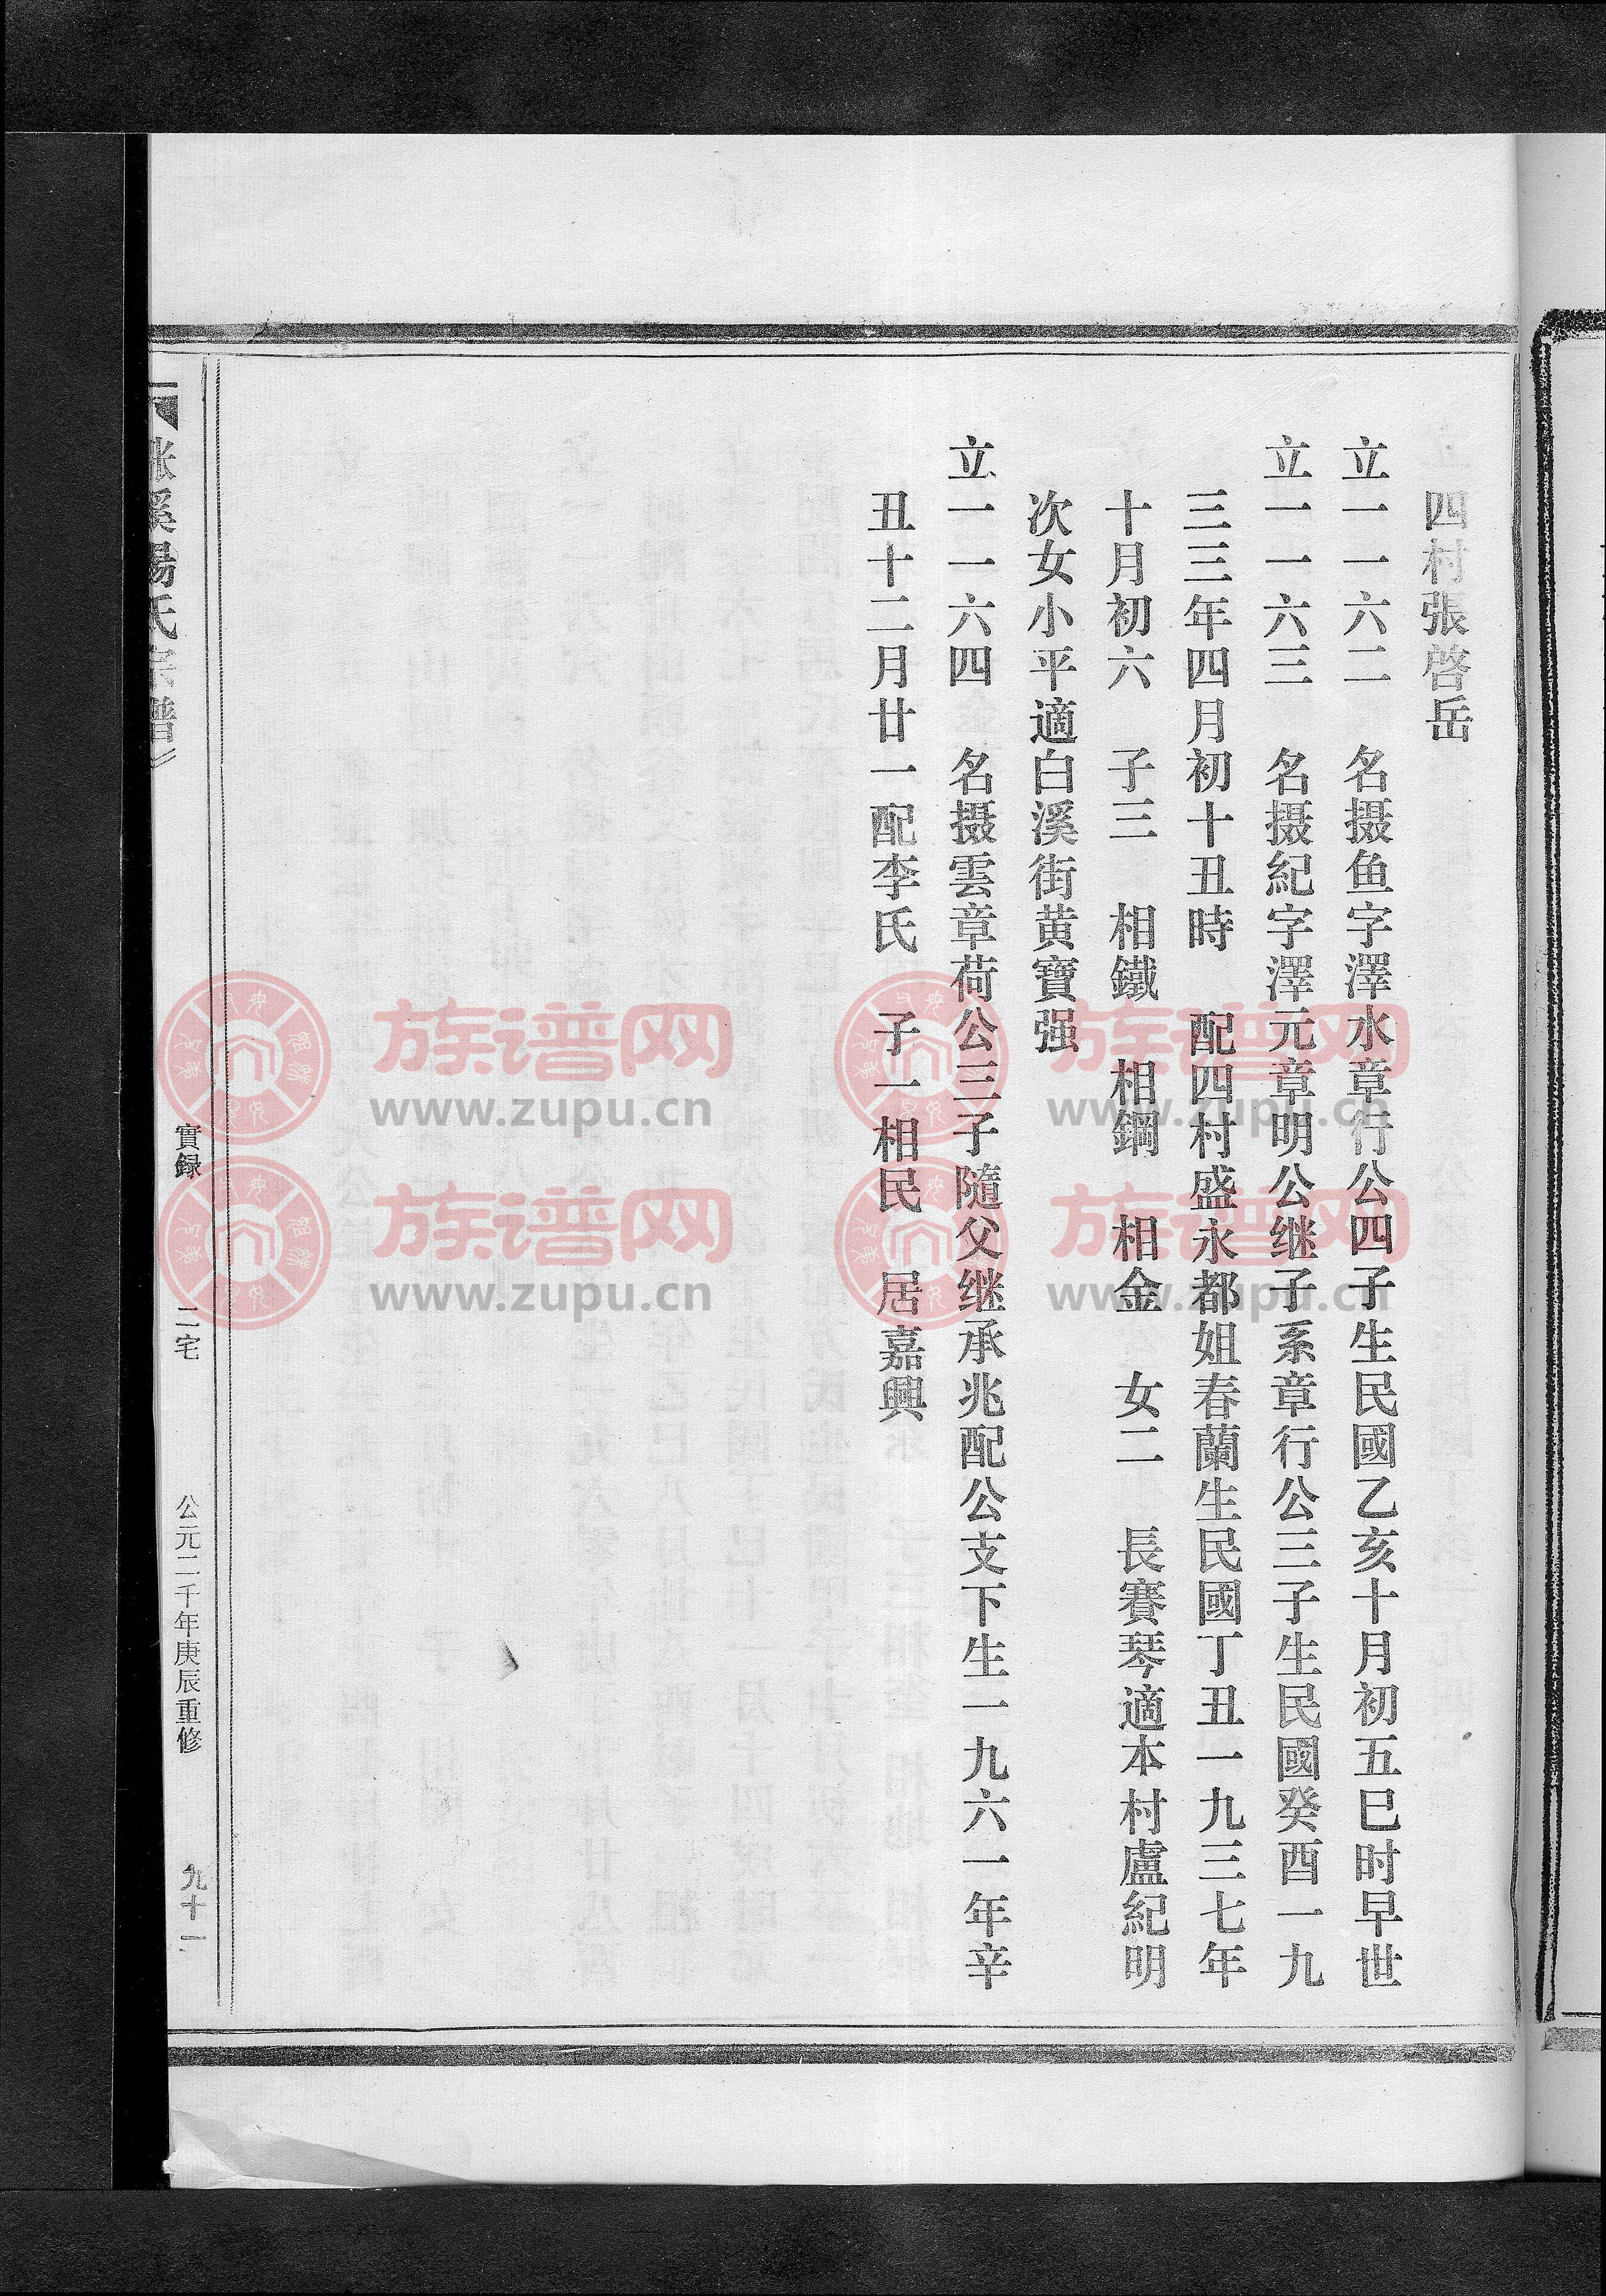 四村張啓岳
立一一六二　名摄鱼字澤水章行公四子生民國乙亥十月初五巳时早世
立一一六三　名摄紀字澤元章明公继子系章行公三子生民國癸酉一九
三三年四月初十丑時　配四村盛永都姐春蘭生民國丁丑一九三七年
十月初六　子三　相鐵　相鋼　相金　女二　長賽琴適本村盧紀明
次女小平適白溪街黄寶强
立一一六四　名摄雲章荷公三子隨父继承兆配公支下生一九六一年辛
丑十二月廿一配李氏　子一相民　居嘉興
溪楊氏宗譜》
實録
二宅
公元二千年庚辰重修
九十一
族谱网
www.zupu.cn
族谱网
www.zupu.cn
族谱网
www.zupu.cn
族谱网
www.zupu.cn